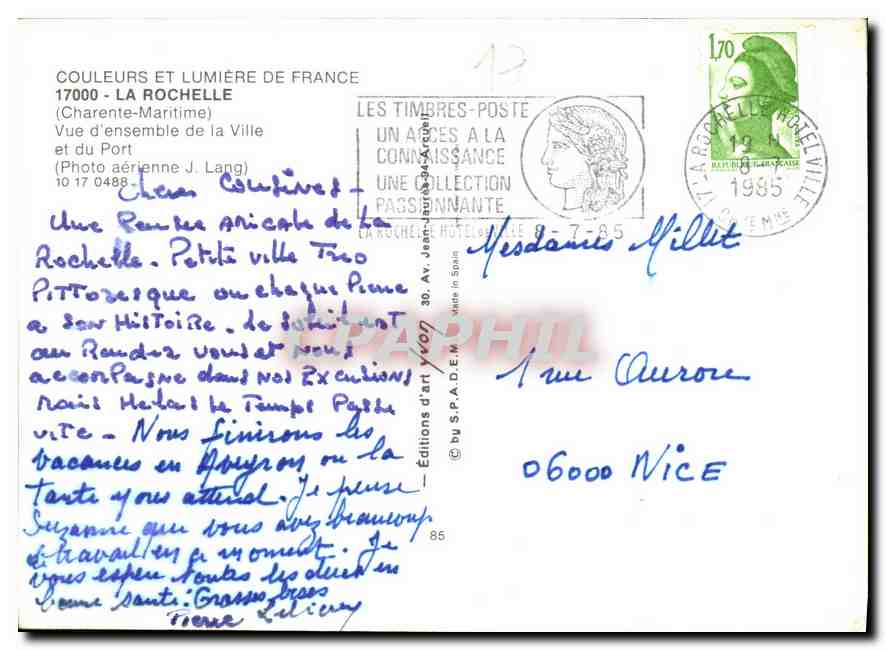 COULEURS ET LUMIÈRE DE FRANCE
17000 - LA ROCHELLE
(Charente-Maritime)
Vue d'ensemble de la Ville
et du Port
(Photo aérienne J. Lang)
10 17 0488
Cousines -
Une Pensée Amicale de La
Rochelle. Petite ville Tres
PITTOresque ou chaque Pierre
a son HISTOIRE. Le soleil est
au Rendez vous et nous
accompagne dans nos Excusions
mais Helas le Temps Passe
vite - Nous finirons les
vacances en Aveyron ou la
Tante attend. Je pense
Suzanne que vous avez beaucoup
de travail en ce moment. Je
vous espere toutes les deux en
bonne santé. Grosses bises
Pierre
— Éditions d'art yvon 30. Av. Jean-Jaurès-94-Arcueil
© by S.P.A.D.E.M. Made in Spain
85
17
LES TIMBRES-POSTE
UN ACCES A LA
CONNAISSANCE
UNE COLLECTION
PASSIONNANTE
LA ROCHELLE HOTEL DE VILLE 8-7-85
1,70
REPUBLIQUE FRANÇAISE
17 LA ROCHELLE HOTEL VILLE
19 H
8-7
1985
CH TE MME
Mesdames Millet
1 rue Aurore
06000 NICE
APHIL